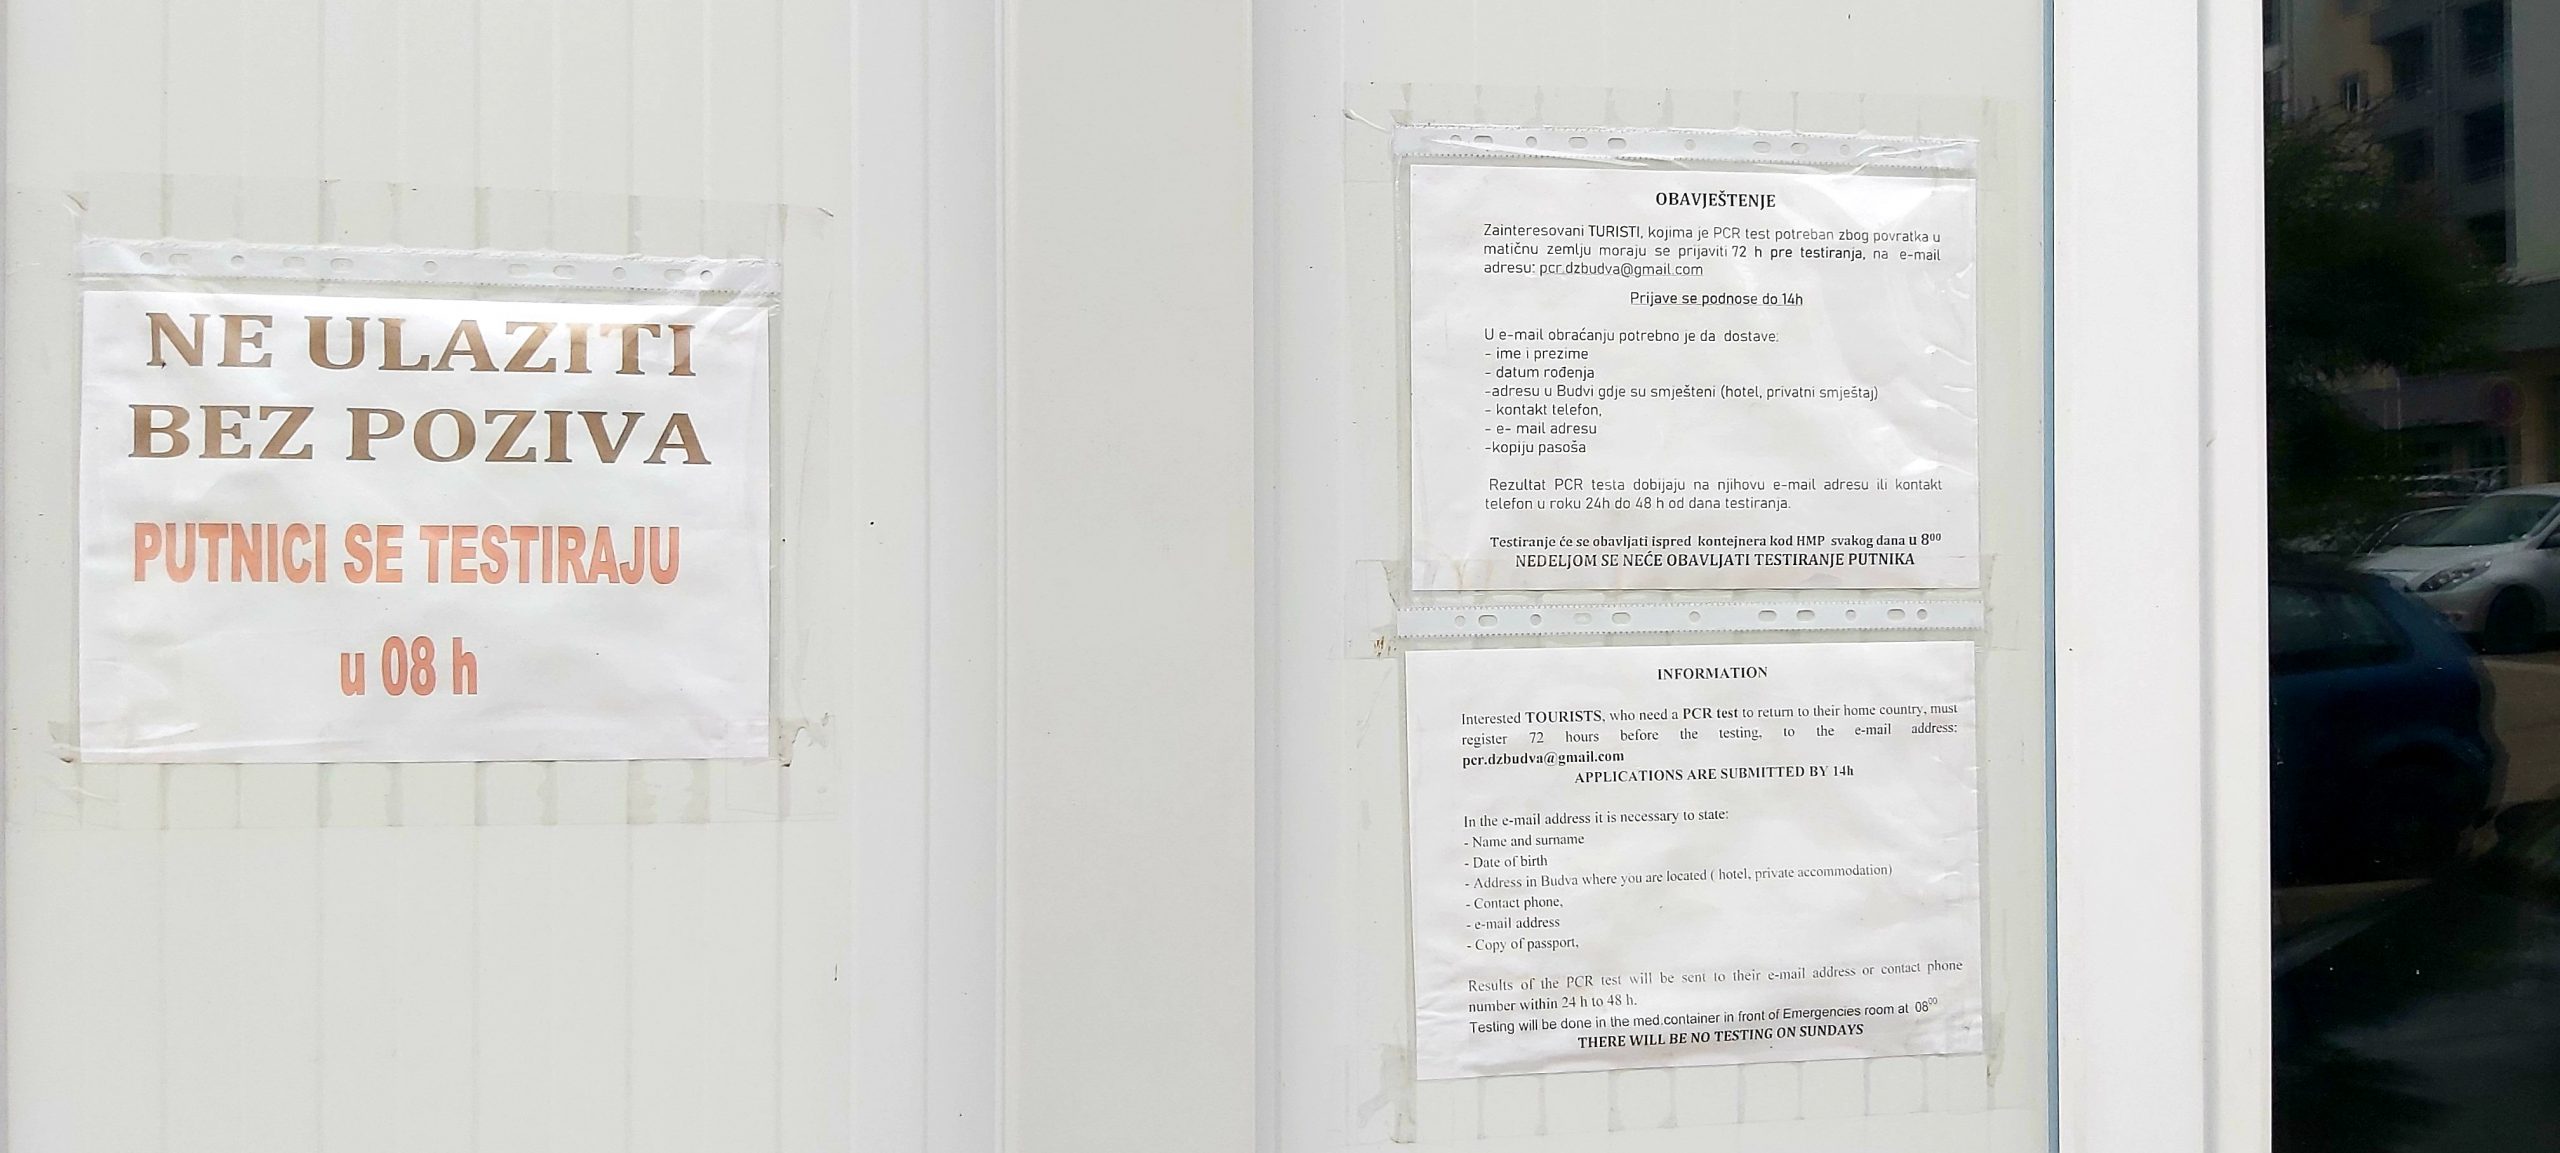 NE ULAZITI
BEZ POZIVA
PUTNICI SE TESTIRAJU
u 08 h
OBAVJEŠTENJE
Zainteresovani TURISTI, kojima je PCR test potreban zbog povratka u
matičnu zemlju moraju se prijaviti 72 h pre testiranja, na e-mail
adresu: pcr.dzbudva@gmail.com
Prijave se podnose do 14h
U e-mail obraćanju potrebno je da dostave:
- ime i prezime
- datum rođenja
-adresu u Budvi gdje su smješteni (hotel, privatni smještaj)
- kontakt telefon,
- e- mail adresu
-kopiju pasoša
Rezultat PCR testa dobijaju na njihovu e-mail adresu ili kontakt
telefon u roku 24h do 48 h od dana testiranja.
Testiranje će se obavljati ispred kontejnera kod HMP svakog dana u 8⁰⁰
NEDELJOM SE NEĆE OBAVLJATI TESTIRANJE PUTNIKA
INFORMATION
Interested TOURISTS, who need a PCR test to return to their home country, must
register 72 hours before the testing, to the e-mail address:
pcr.dzbudva@gmail.com
APPLICATIONS ARE SUBMITTED BY 14h
In the e-mail address it is necessary to state:
- Name and surname
- Date of birth
- Address in Budva where you are located ( hotel, private accommodation)
- Contact phone,
- e-mail address
- Copy of passport,
Results of the PCR test will be sent to their e-mail address or contact phone
number within 24 h to 48 h.
Testing will be done in the med.container in front of Emergencies room at 08⁰⁰
THERE WILL BE NO TESTING ON SUNDAYS